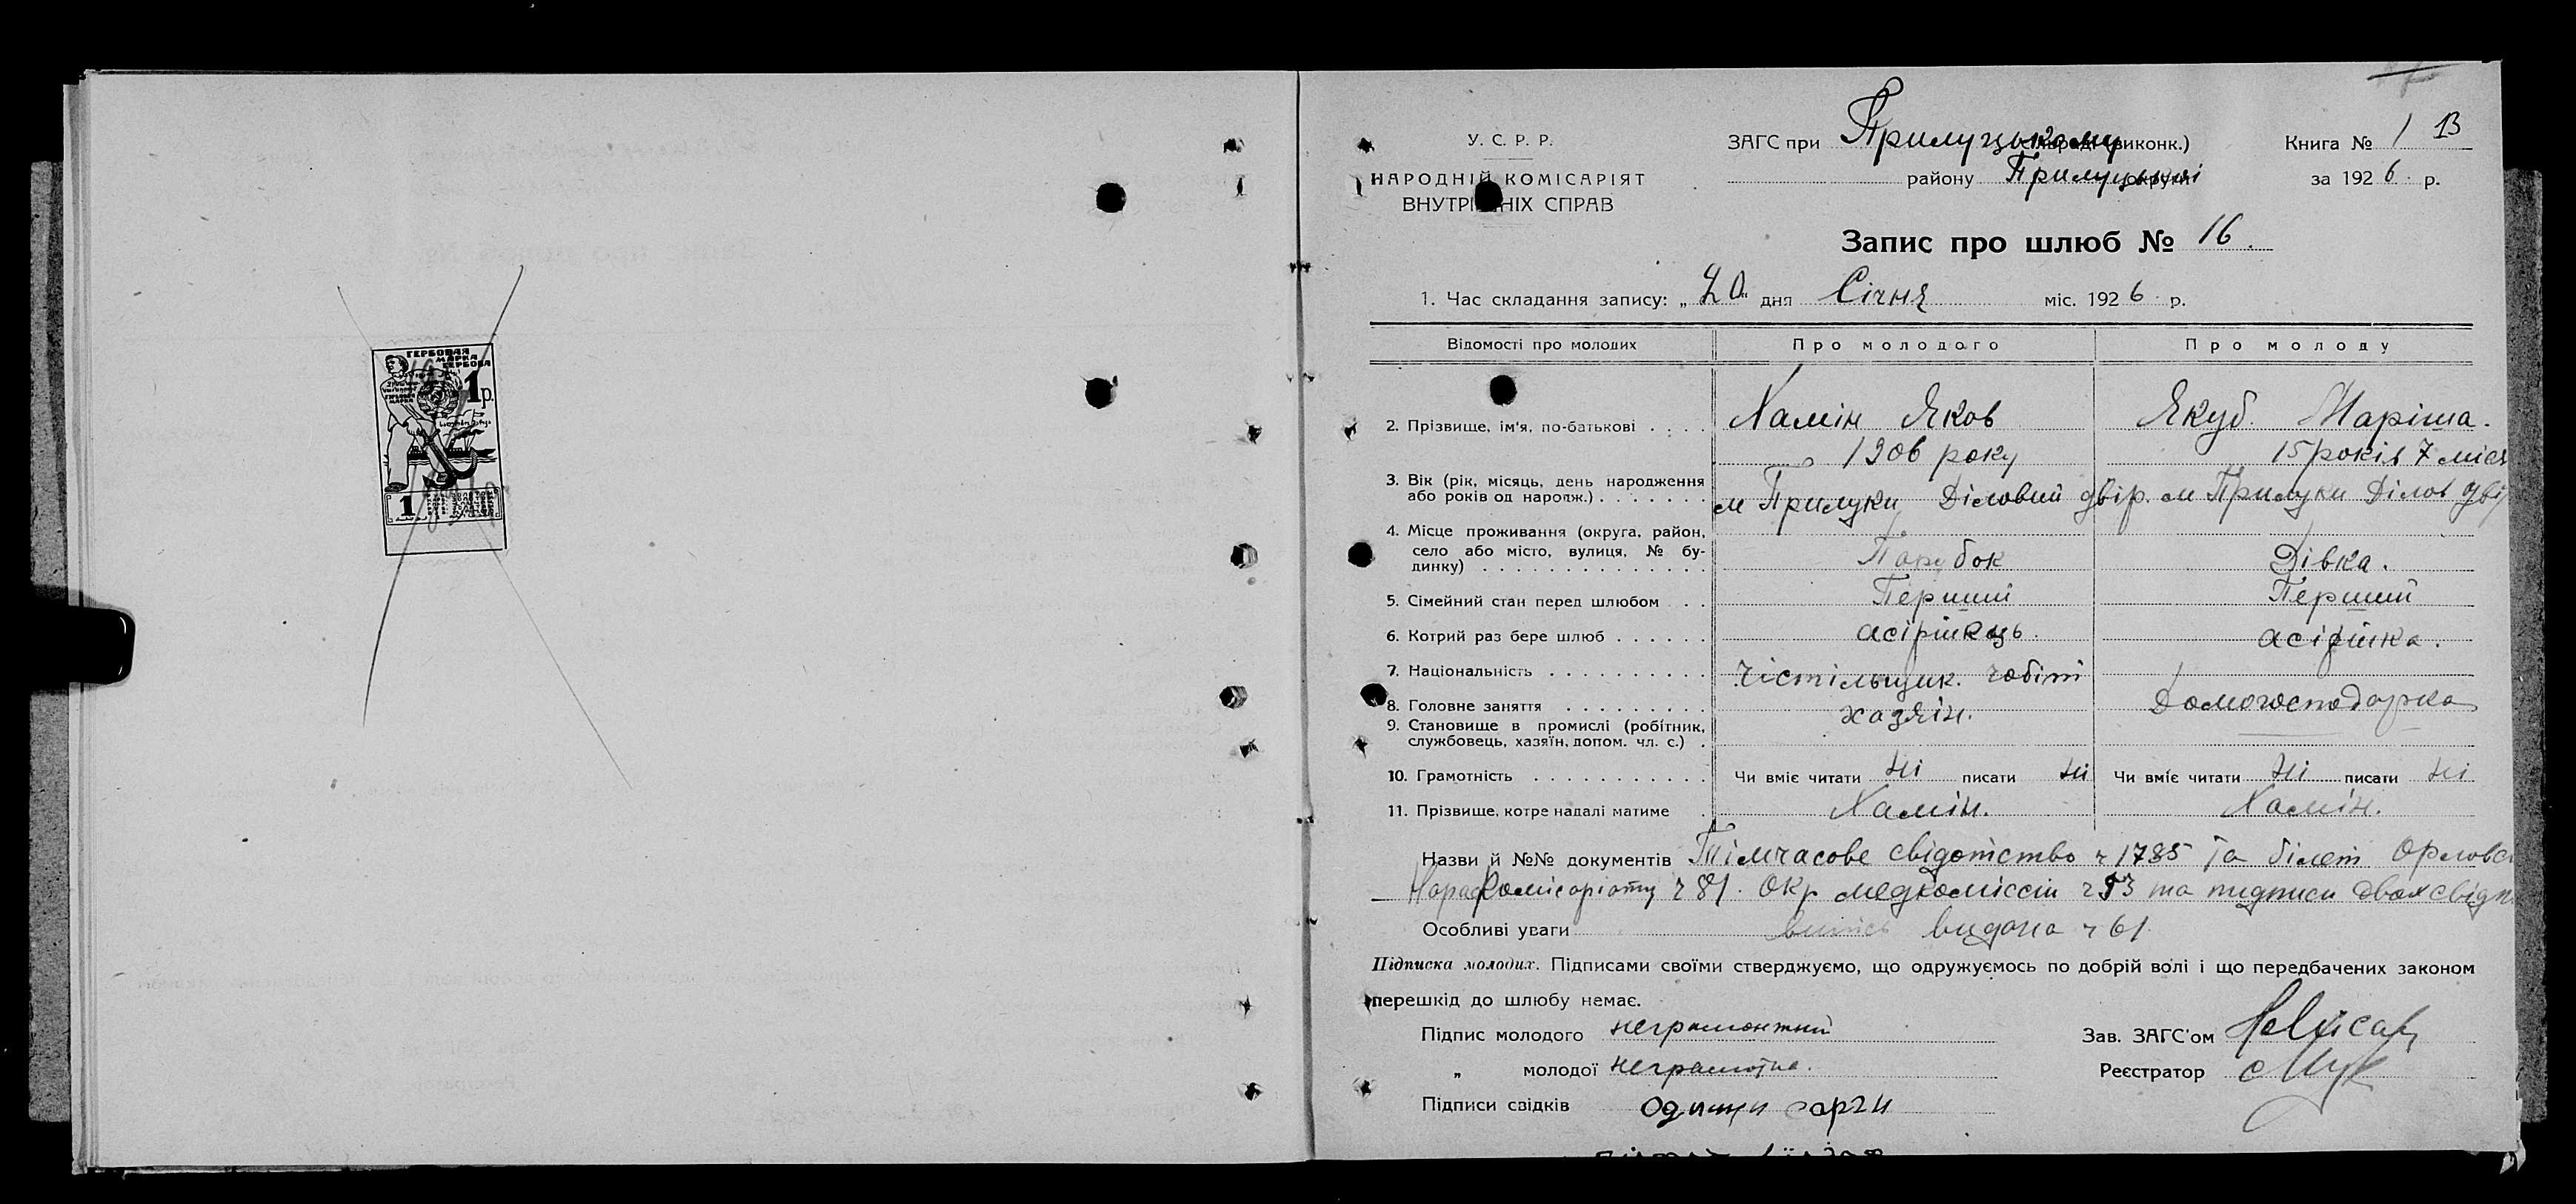 ГЕРБОВАЯ
МАРКА
ГЕРБОВА
1р.
1
У. С. Р. Р.
НАРОДНІЙ КОМІСАРІЯТ
ВНУТРІШНІХ СПРАВ
ЗАГС при Прилуцькому виконк.)
району Прилуцької округи
Книга № 1 13
за 1926 р.
Запис про шлюб № 16.
1. Час складання запису: „20“ дня Січня міс. 1926 р.
Відомості про молодих Про молодого Про молоду
2. Прізвище, ім'я, по-батькові . . . . Хамін Яков Якуб Маріша.
1906 року 15 років 7 міся
3. Вік (рік, місяць, день народження
або років од народж.) . . . . . . . м Прилуки Діловий двір. м Прилуки Ділов двір
4. Місце проживання (округа, район,
село або місто, вулиця, № бу-
динку) . . . . . . . . . . . . . . Парубок Дівка.
5. Сімейний стан перед шлюбом . . . Перший Перший
6. Котрий раз бере шлюб . . . . . . асірієць. асірійка.
7. Національність . . . . . . . . . . Чістільщик чобіт
8. Головне заняття . . . . . . . . . хазяін. Домогосподарка
9. Становище в промислі (робітник,
службовець, хазяїн, допом. чл. с.) .
10. Грамотність . . . . . . . . . . . Чи вміє читати ні писати ні Чи вміє читати ні писати ні
11. Прізвище, котре надалі матиме . Хамін. Хамін.
Назви й №№ документів Тімчасове свідотство ч 1785 та білет Орловс
ч 81. Окр медкоміссіи ч 53 та підписи двох свідк
Особливі уваги випись видана ч 61
Підписка молодих. Підписами своїми стверджуємо, що одружуємось по добрій волі і що передбачених законом
перешкід до шлюбу немає.
Підпис молодого неграмотний
Зав. ЗАГС'ом
„ молодої неграмотна.
Реєстратор
Підписи свідків